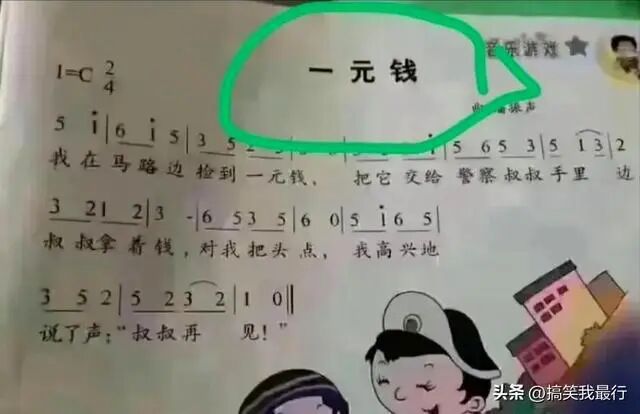 音乐游戏
一元钱
1=C 2/4
振声
5 i|6 i 5|3 5
5 6 5 3|5 1 3|2
我在马路边捡到一元钱，把它交给警察叔叔手里边
3 2 1 2|3 -|6 5 3 5|6 0|5 i 6 5|
叔叔拿着钱，对我把头点，我高兴地
3 5 2|5 2 3 2|1 0‖
说了声：“叔叔再见！”
头条 @搞笑我最行